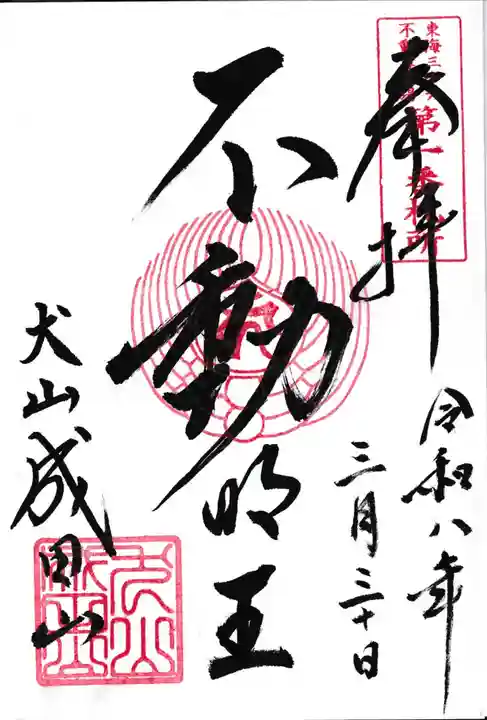 奉拝
東海三
不動
第一番札所
令和八年
三月三十日
不動明王
犬山成田山